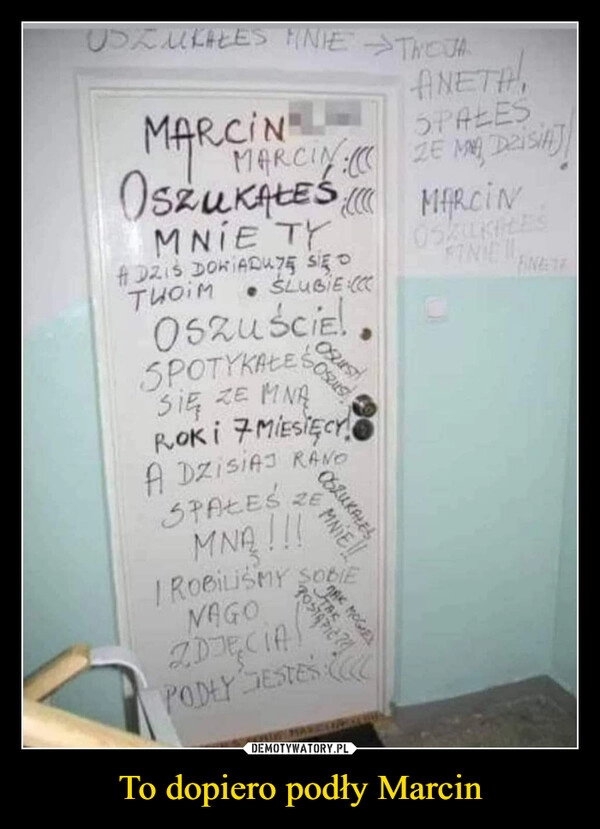 OSZUKAŁEŚ MNIE → TWOJA
ANETA!,
SPAŁEŚ
ZE MNĄ DZISIAJ!
MARCIN
OSZUKAŁEŚ
MNIE!!
ANETA
MARCIN
MARCIN :(((
OSZUKAŁEŚ :((((
MNIE TY
A DZIŚ DOWIADUJĘ SIĘ O
TWOIM • ŚLUBIE :(((
OSZUŚCIE!
SPOTYKAŁEŚ
OSZUST!
OSZUST!
SIĘ ZE MNĄ
ROK i 7 MIESIĘCY!
A DZISIAJ RANO
SPAŁEŚ ZE
MNĄ!!!
OSZUKAŁEŚ
MNIE!!
I ROBILIŚMY SOBIE
NAGO
ZDJĘCIA!
JAK MOGŁEŚ
TAK
POSTĄPIĆ??!
PODŁY JESTEŚ :((((
DEMOTYWATORY.PL
To dopiero podły Marcin